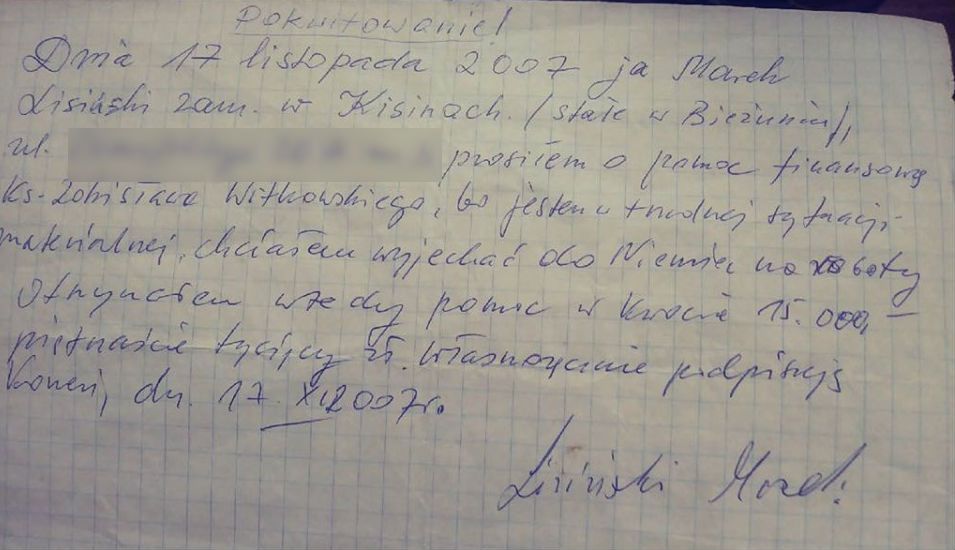 Pokwitowanie!
Dnia 17 listopada 2007 ja Marek
Lisiński zam. w Kisinach. /stale w Bieżuniu/,
ul. prosiłem o pomoc finansową
Ks. Zdzisława Witkowskiego, bo jestem w trudnej sytuacji
materialnej, chciałem wyjechać do Niemiec na roboty
Otrzymałem wtedy pomoc w kwocie 15.000,-
piętnaście tysięcy zł. Własnoręcznie podpisuję
dn. 17 XI 2007r.
Lisiński Marek